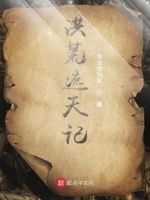 洪荒遮天记
著
起点中文网